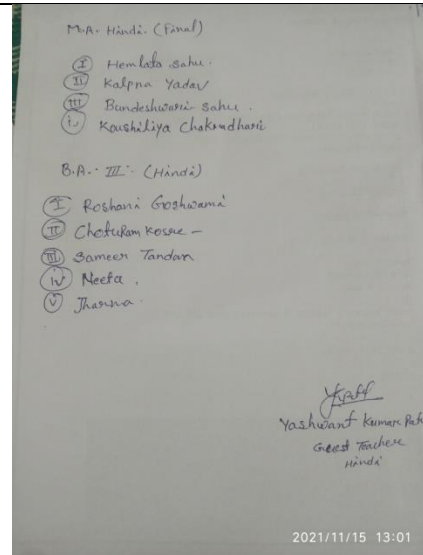 M.A. Hindi. (Final)
I Hemlata Sahu.
II Kalpna Yadav
III Bundeshwari Sahu.
iv Koushiliya Chakradhari
B.A. III (Hindi)
I Roshani Goshwami
II Choturam Kosre -
III Sameer Tandan
iv Neeta.
v Jharna.
Yashwant Kumar
Guest Teacher
Hindi
2021/11/15 13:01